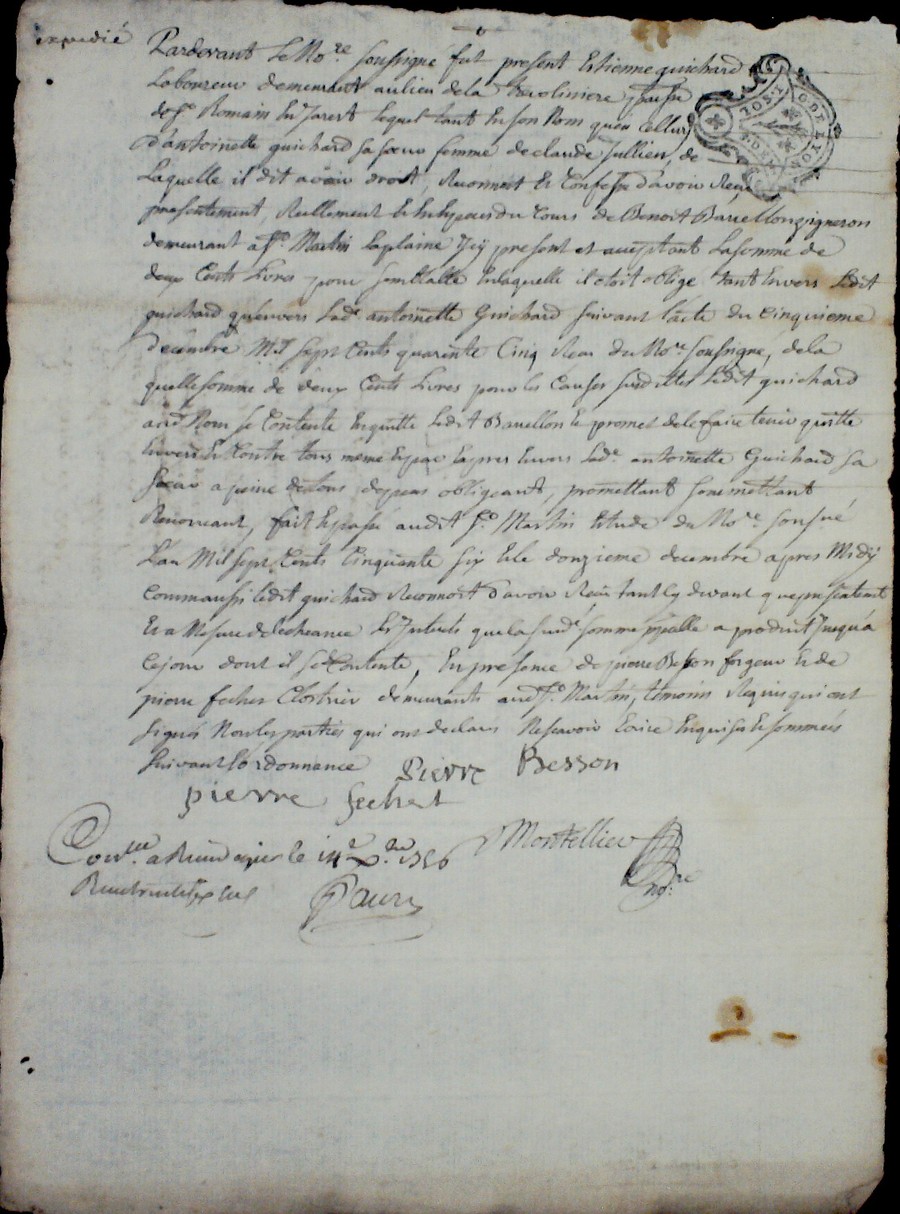 expedié
Pardevant Le No.re soussigné fut present Estienne guichard
Laboureur demeurant au lieu de la
de St Romain En Jarest Lequel tant En son Nom quen Celluy
d'antoinette guichard sa soeur femme de claude Jullien, de
Laquelle il dit avoir droit, Reconnoit Et Confesse d'avoir Receu
presentement, Reellement Et En Especes du Cours de Benoit Barrellon vigneron
demeurant a St. Martin Laplaine Jcy present et acceptant La somme de
deux Cents Livres pour semblable En laquelle il etoit oblige tant Envers Ledit
guichard qu'envers Lade. antoinette Guichard suivant l'acte du Cinquieme
decembre Mil sept Cents quarente Cinq Receu du No.re soussigné, de la
quelle somme de deux Cents Livres pour les Causes susdittes Ledit guichard
aud Nom se Contente En quitte Ledit Barrellon Et promet de le faire tenir quitte
Envers Et Contre tous même Envers Lade. antoinette Guichard sa
soeur a peine de tous depens obligeant, promettant soumettant
Renonceant, fait Et passé audit St. Martin Etude du No.re sousné
L'an Mil sept Cents Cinquante six Et le douzieme decembre apres Midÿ
Comm'aussi ledit guichard Reconnoit d'avoir Receu tant Cy devant que presentement
Et a Mesure de l'echeance Les Interets que la susde somme ppalle a produit Jusqu'a
Ce jour dont il se Contente, En presence de pierre Besson forgeur Et de
pierre fechet Cloutier demeurants aud St. Martin, temoins Requis qui ont
signés Non les parties qui ont declaré Ne scavoir Ecrire Enquis Et sommés
suivant l'ordonnance Pierre Besson
pierre fechet
Montellier
no.re
Conlle. a Rive de gier le 14e Xbre 1756